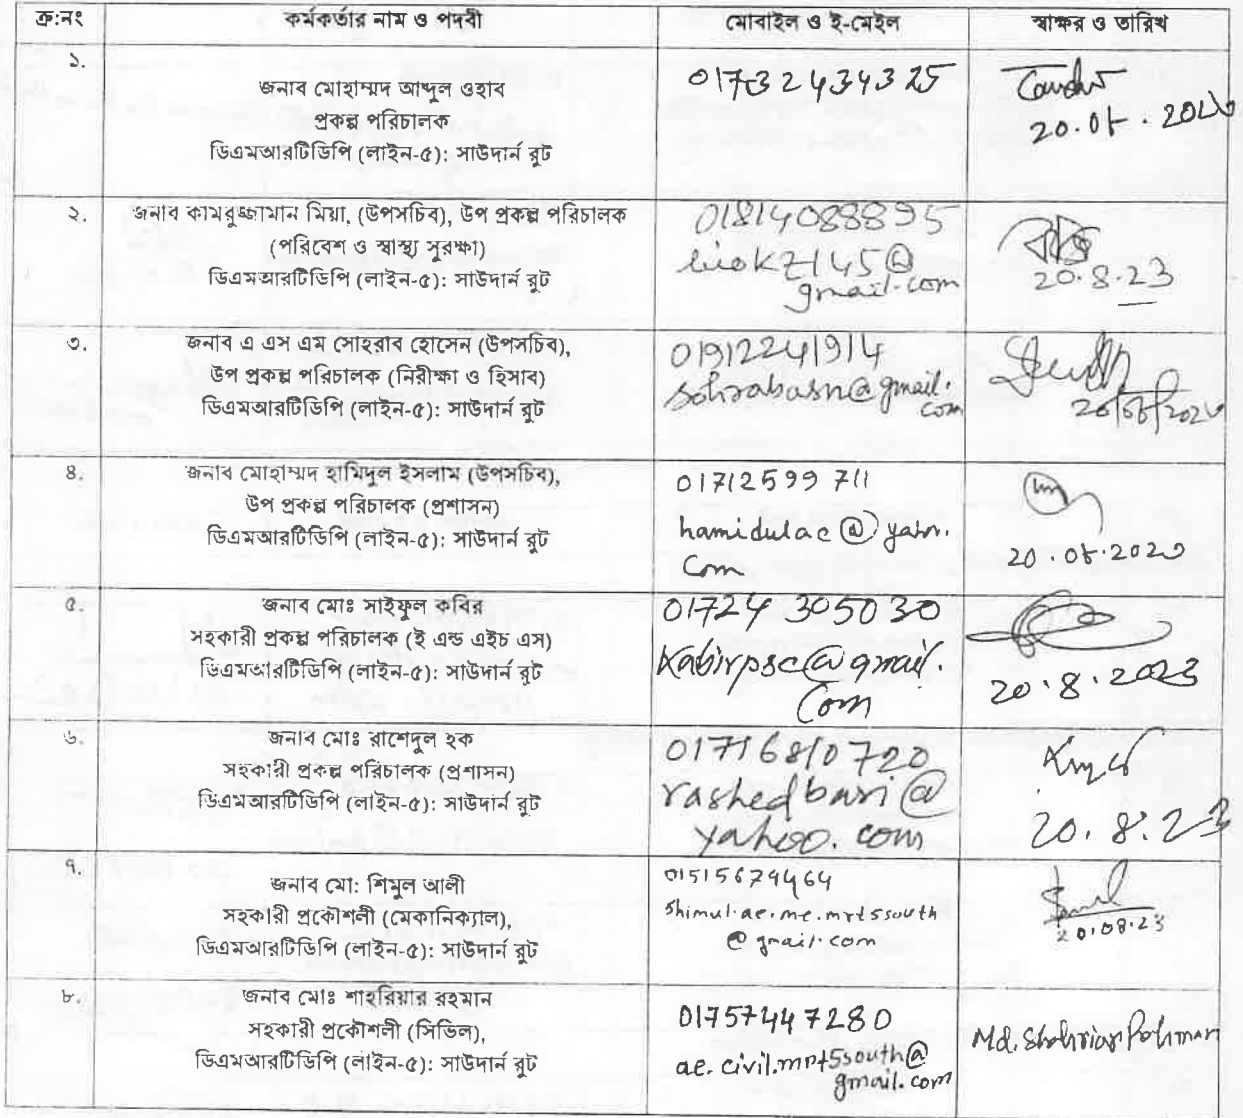 ক্র:নং	কর্মকর্তার নাম ও পদবী	মোবাইল ও ই-মেইল	স্বাক্ষর ও তারিখ
১.
জনাব মোহাম্মদ আব্দুল ওহাব
প্রকল্প পরিচালক
ডিএমআরটিডিপি (লাইন-৫): সাউদার্ন রুট
01732434325
20.08.2023
২.
জনাব কামরুজ্জামান মিয়া, (উপসচিব), উপ প্রকল্প পরিচালক
(পরিবেশ ও স্বাস্থ্য সুরক্ষা)
ডিএমআরটিডিপি (লাইন-৫): সাউদার্ন রুট
01814088895
gmail.com
20.8.23
৩.
জনাব এ এস এম সোহরাব হোসেন (উপসচিব),
উপ প্রকল্প পরিচালক (নিরীক্ষা ও হিসাব)
ডিএমআরটিডিপি (লাইন-৫): সাউদার্ন রুট
01912241914
sohrabasn@gmail.
com
20/08/2023
৪.
জনাব মোহাম্মদ হামিদুল ইসলাম (উপসচিব),
উপ প্রকল্প পরিচালক (প্রশাসন)
ডিএমআরটিডিপি (লাইন-৫): সাউদার্ন রুট
01712599711
hamidulac@yahoo.
com
20.08.2023
৫.
জনাব মোঃ সাইফুল কবির
সহকারী প্রকল্প পরিচালক (ই এন্ড এইচ এস)
ডিএমআরটিডিপি (লাইন-৫): সাউদার্ন রুট
01724 305030
Kabirpsc@gmail.
Com
20.8.2023
৬.
জনাব মোঃ রাশেদুল হক
সহকারী প্রকল্প পরিচালক (প্রশাসন)
ডিএমআরটিডিপি (লাইন-৫): সাউদার্ন রুট
01716810720
rashedbari@
yahoo.com
20.8.23
৭.
জনাব মো: শিমুল আলী
সহকারী প্রকৌশলী (মেকানিক্যাল),
ডিএমআরটিডিপি (লাইন-৫): সাউদার্ন রুট
01515679464
shimul.ae.me.mrt5south
@gmail.com
20.08.23
৮.
জনাব মোঃ শাহরিয়ার রহমান
সহকারী প্রকৌশলী (সিভিল),
ডিএমআরটিডিপি (লাইন-৫): সাউদার্ন রুট
01757447280
ae.civil.mrt5south@
gmail.com
Md. Shahriar Rahman